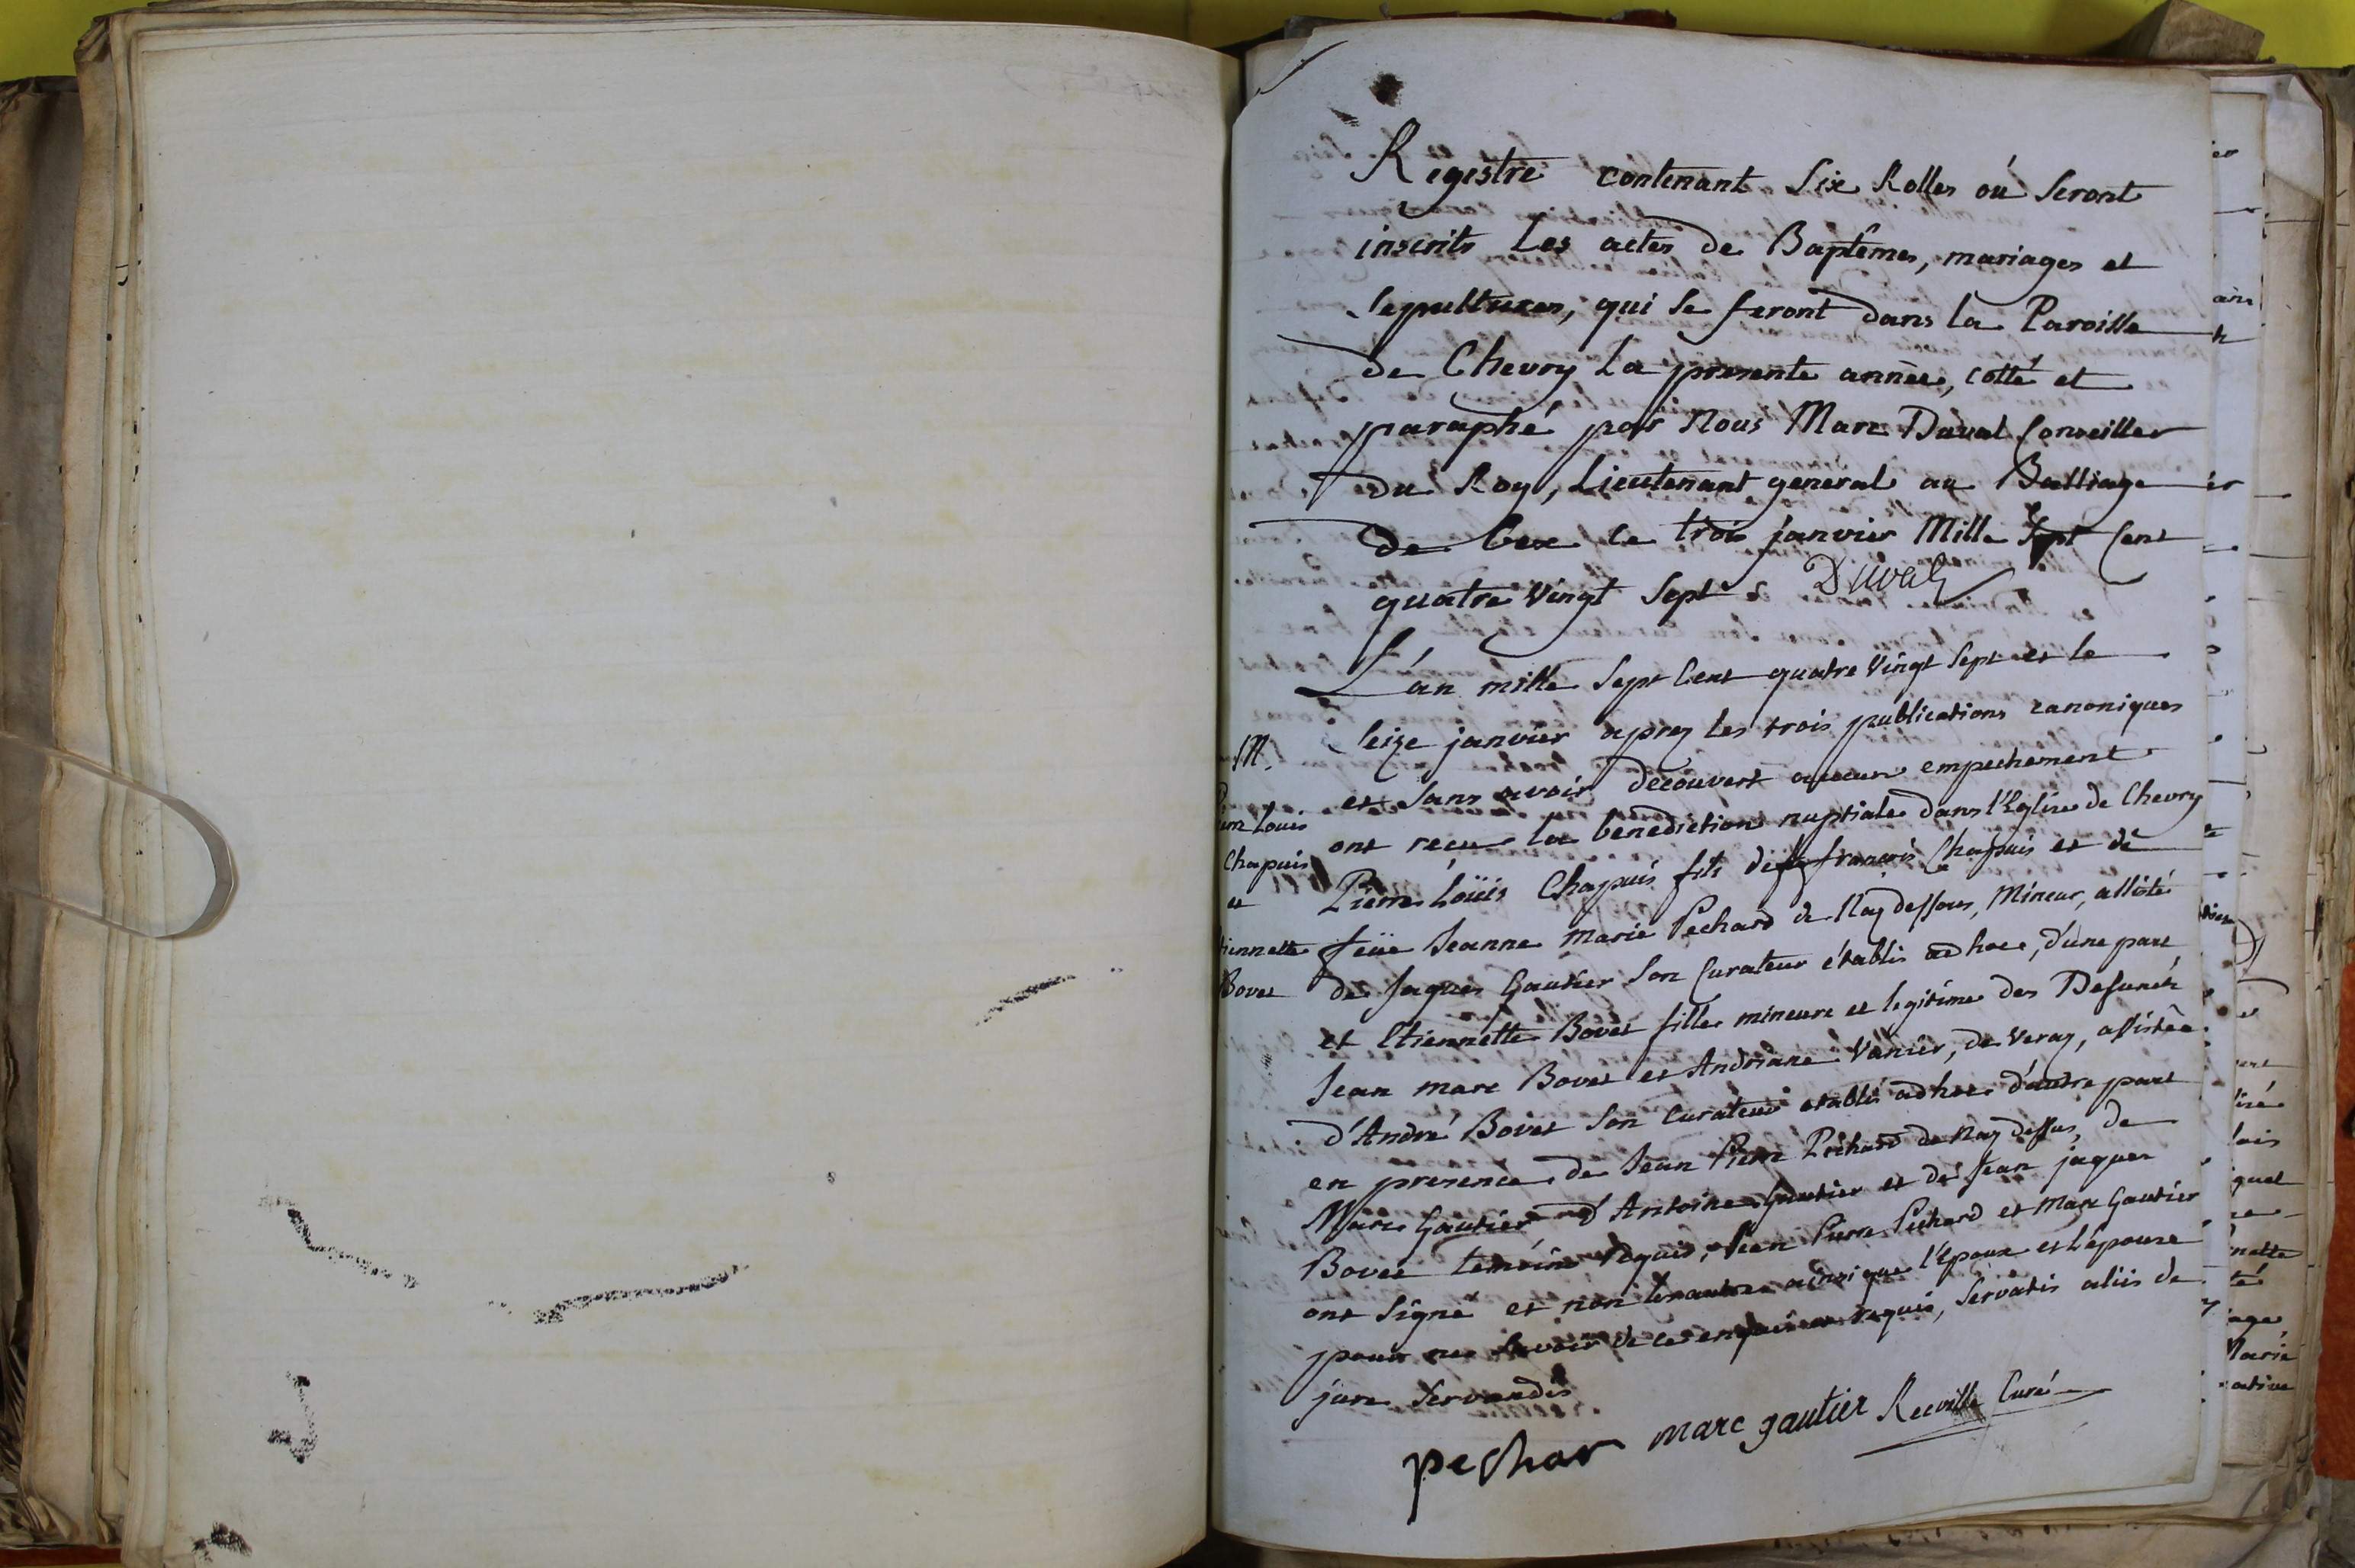 Registre contenant Six Rolles où Seront
inscrits Les actes de Baptêmes, mariages et
Sepultures, qui Se feront dans la Paroisse
de Chevry La presente année, cotté et
paraphé par Nous Marc Duval Conseiller
du Roy, Lieutenant general au Balliage
de Gex ce trois janvier Mille Sept Cent
quatre Vingt Sept Duval
L'an mille Sept Cent quatre Vingt Sept et le
Seize janvier aprez les trois publications canoniques
et Sans avoir decouvert aucun empechement
ont recu la benediction nuptiale dans l'Eglise de Chevry
Pierre Loüis Chapuis fils de françois Chapuis et de
feüe Jeanne Marie Pechard de Naz dessous, Mineur, assisté
de Jaques Gautier Son Curateur établis ad hoc, d'une part
et Etiennette Bovet fille mineure et legitime des Defuncts
Jean marc Bovet et Andriane Vanier, de Veraz, assistée
d'André Bovet Son Curateur etabli ad hoc d'autre part
en presence de Jean Pierre Pechard de Naz dessus, de
Marc Gautier, d'Antoine Gautier et de Jean jaques
Bovet temoins requis, Jean Pierre Pechard et Marc Gautier
ont Signé et non les autres ainsi que l'Epoux et L'épouse
pour ne Savoir de ce enquis et requis, Servatis aliis de
jure Servandis
pechar marc gautier Recville Curé
M.
Pierre Louis
Chapuis
et
tiennette
Bovet